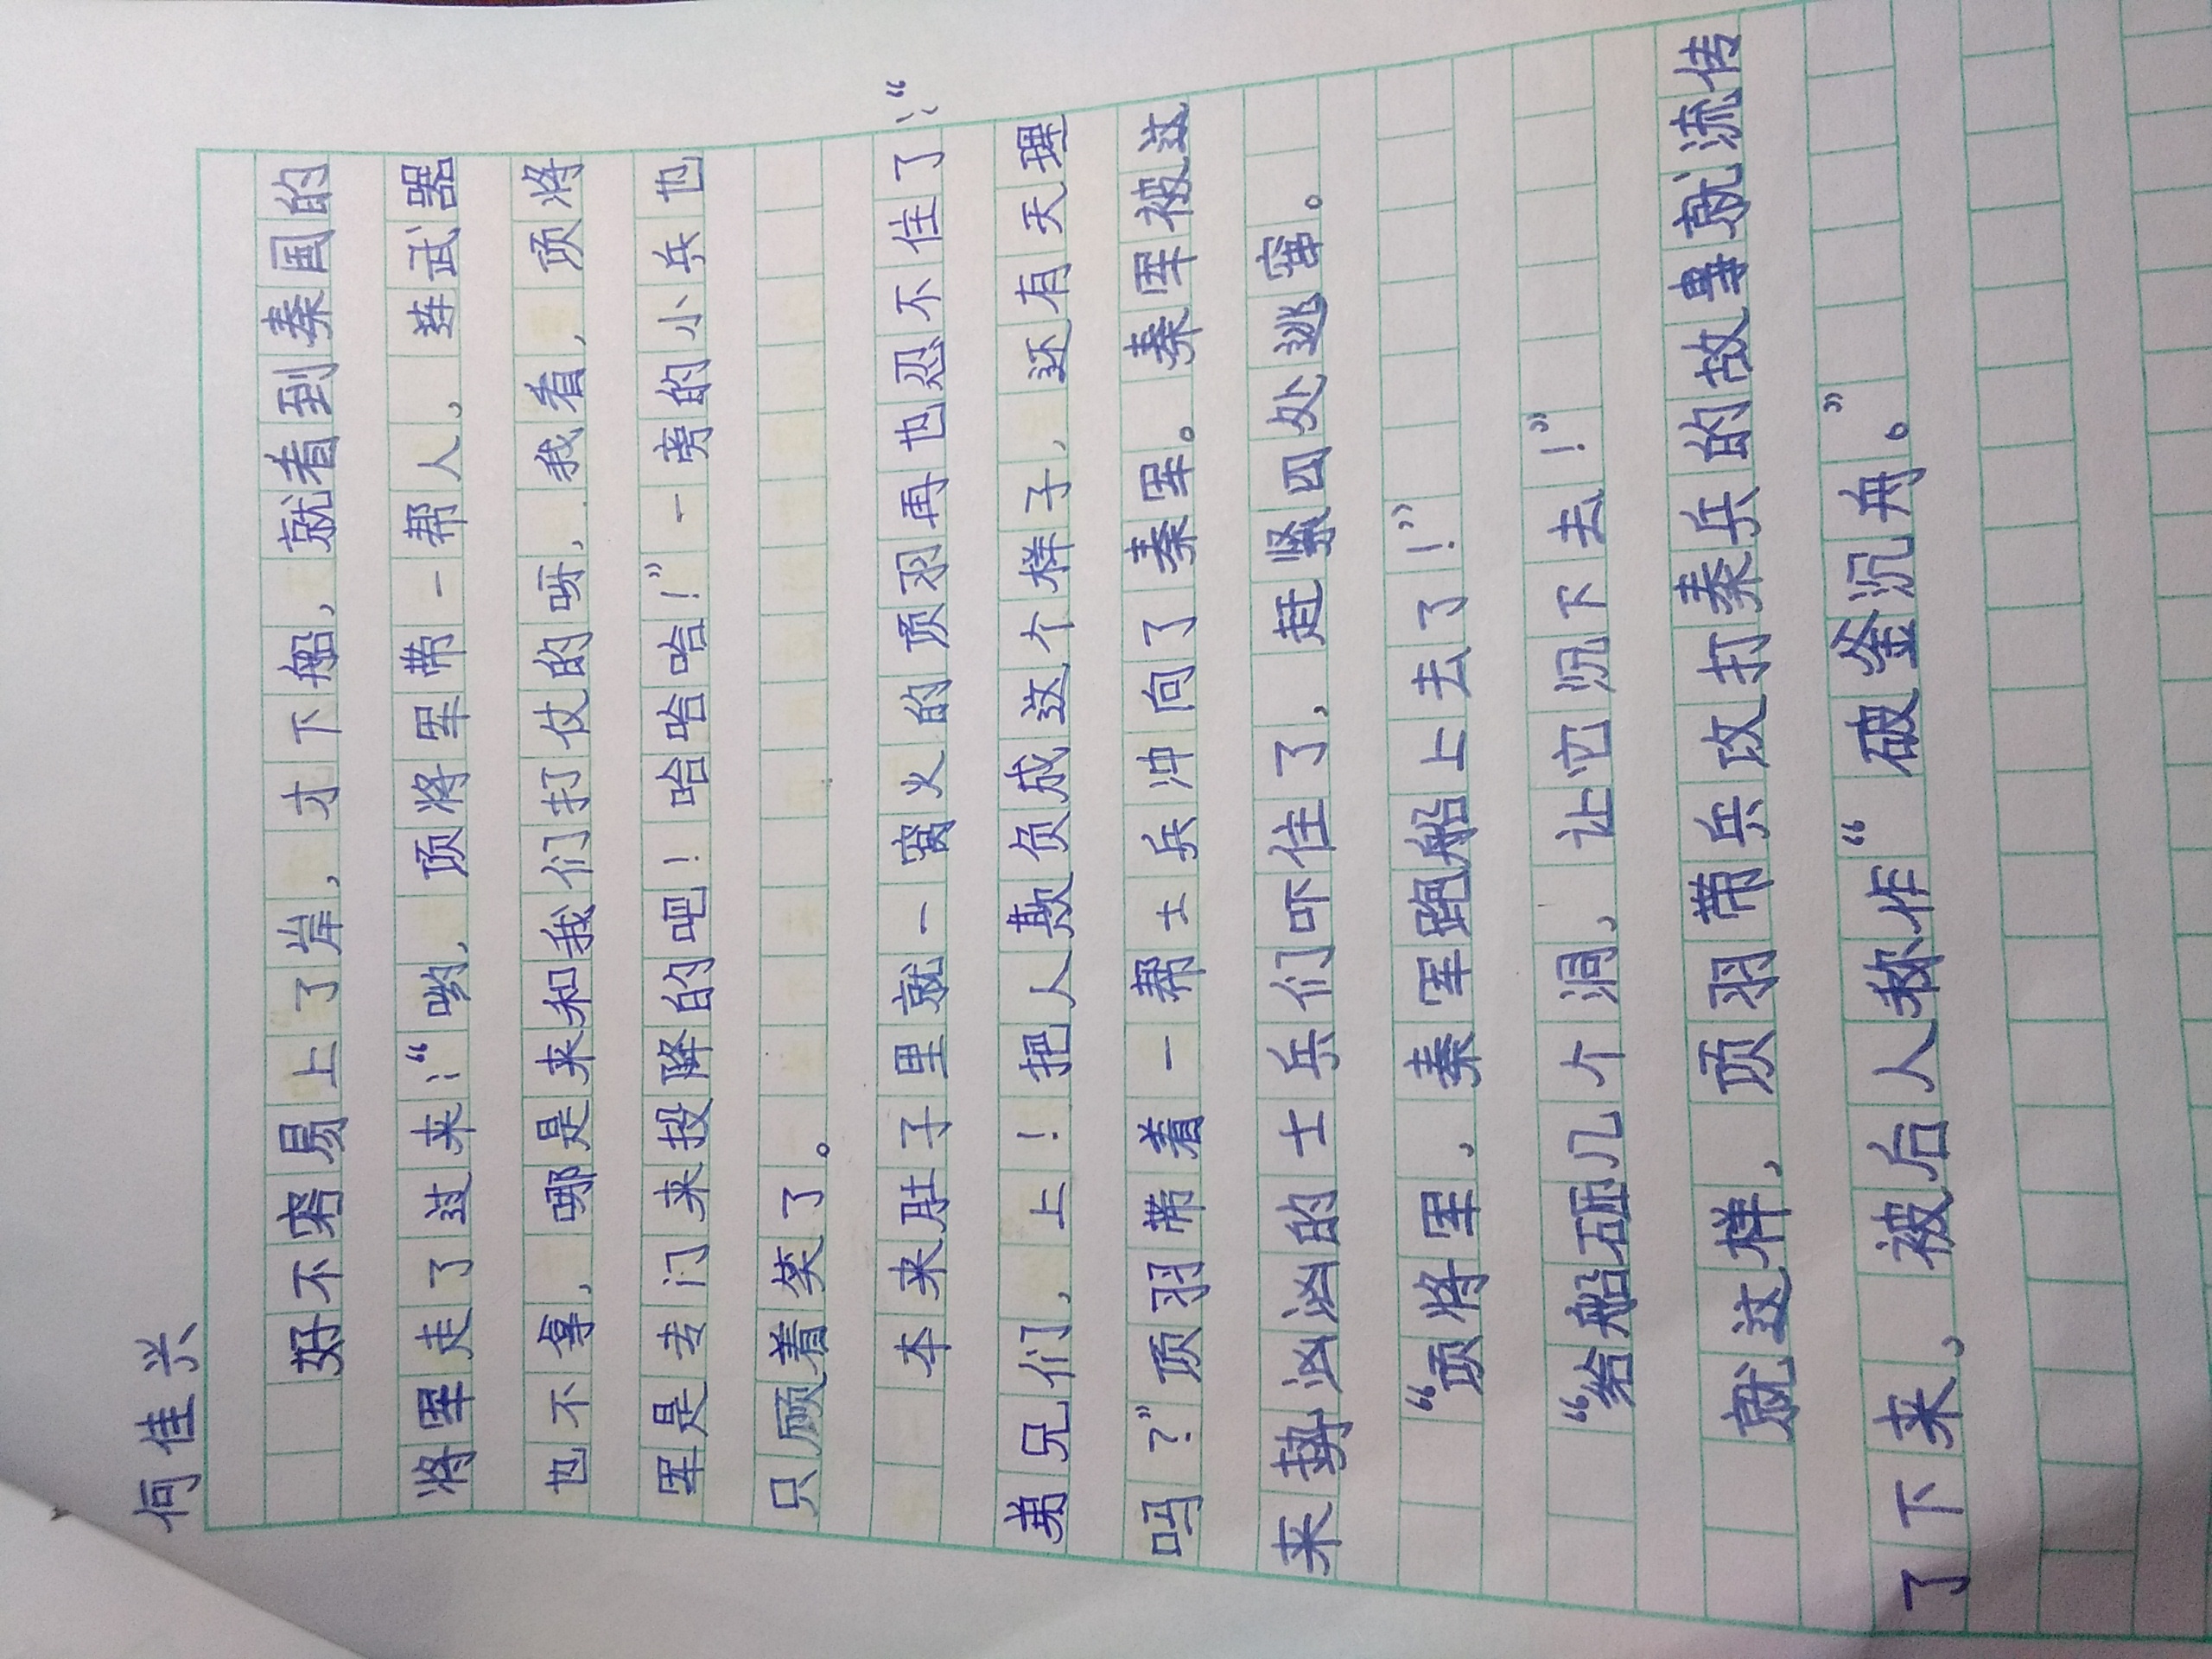 何佳兴
好不容易上了岸，才下船，就看到秦国的
将军走了过来：“哟，项将军带一帮人，连武器
也不拿，哪是来和我们打仗的呀，我看，项将
军是专门来投降的吧！哈哈哈！”一旁的小兵也
只顾着笑了。
本来肚子里就一窝火的项羽再也忍不住了：“
弟兄们，上！把人欺负成这个样子，还有天理
吗？”项羽带着一帮士兵冲向了秦军。秦军被这
来势汹汹的士兵们吓住了，赶紧四处逃窜。
“项将军，秦军跑船上去了！”
“给船砸几个洞，让它沉下去！”
就这样，项羽带兵攻打秦兵的故事就流传
了下来，被后人称作“破釜沉舟。”